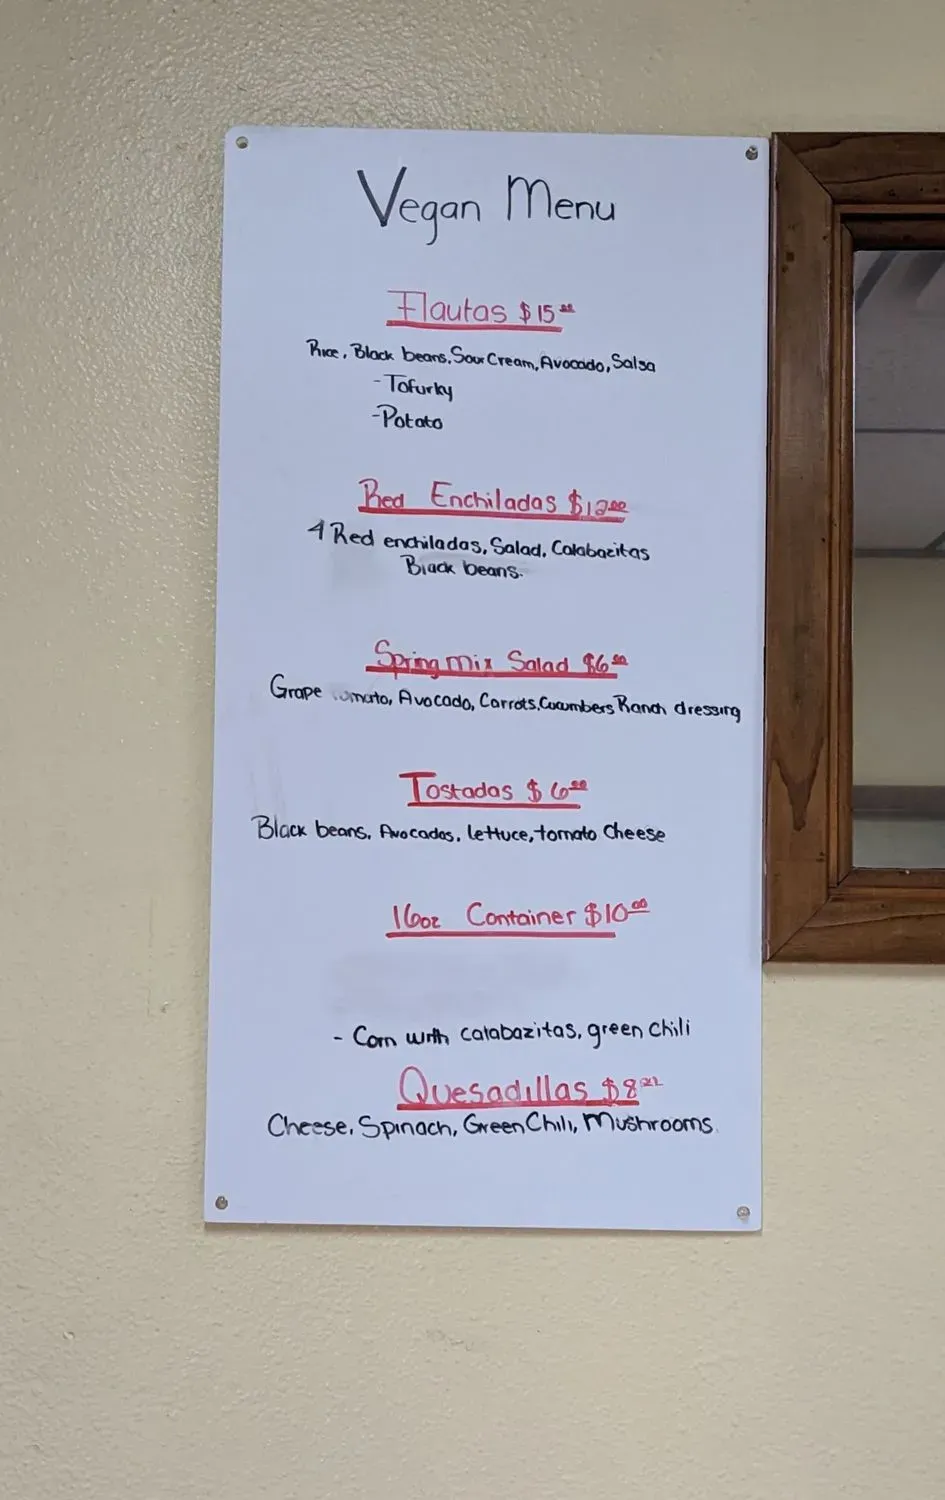 Vegan Menu
Flautas $15.00
Rice, Black beans, Sour Cream, Avocado, Salsa
-Tofurky
-Potato
Red Enchiladas $12.00
4 Red enchiladas, Salad, Calabazitas
Black beans.
Spring mix Salad $6.00
Grape tomato, Avocado, Carrots, Cucumbers Ranch dressing
Tostadas $6.00
Black beans, Avocados, lettuce, tomato Cheese
16oz Container $10.00
- Corn with calabazitas, green chili
Quesadillas $8.00
Cheese, Spinach, Green Chili, Mushrooms